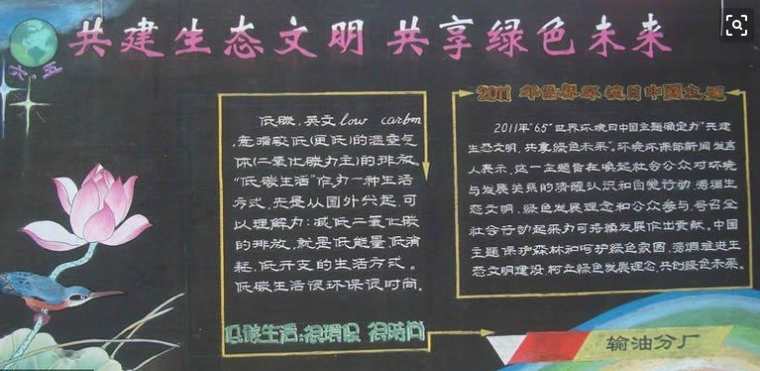 共建生态文明 共享绿色未来
六·五
低碳,英文low carbon,
意指较低(更低)的温室气
体(二氧化碳为主)的排放。
"低碳生活"作为一种生活
方式,先是从国外兴起,可
以理解为:减低二氧化碳
的排放,就是低能量、低消
耗、低开支的生活方式。
低碳生活很环保很时尚。
低碳生活:很環保 很時尚
2011年世界环境日中国主题
2011年"65"世界环境日中国主题确定为"共建
生态文明,共享绿色未来"。环境环保部新闻发言
人表示,这一主题旨在唤起社会公众对环境
与发展关系的清醒认识和自觉行动,
生态文明、绿色发展理念和公众参与,号召全
社会行动起来为可持续发展作出贡献。中国
主题保护森林和呵护绿色家园,推进生
态文明建设,树立绿色发展理念,共创绿色未来。
输油分厂